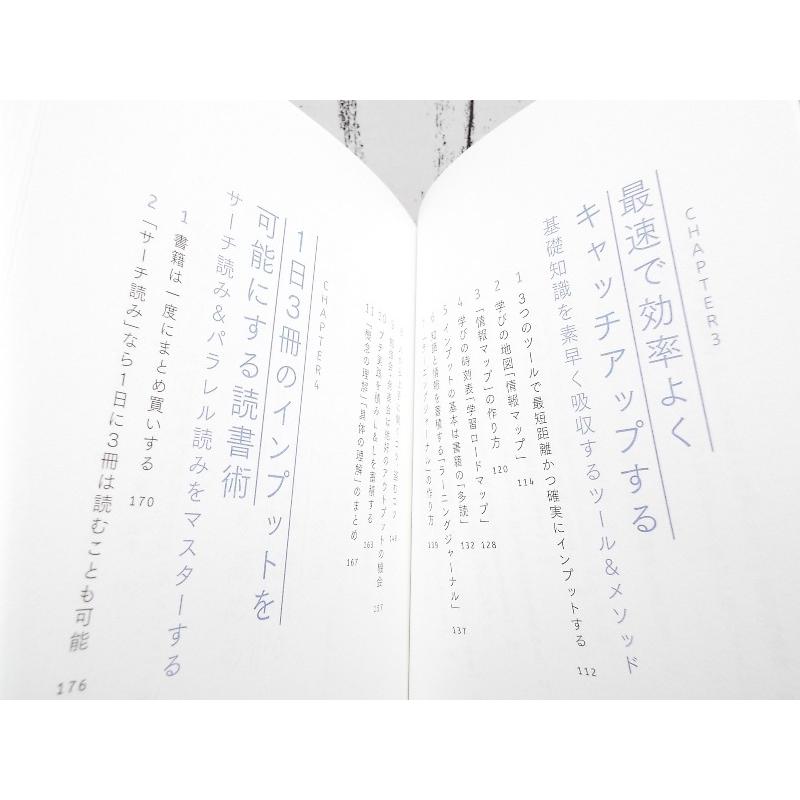 CHAPTER 3
最速で効率よく
キャッチアップする
基礎知識を素早く吸収するツール&メソッド
1 3つのツールで最短距離かつ確実にインプットする 112
2 学びの地図「情報マップ」 114
3 「情報マップ」の作り方 120
4 学びの時刻表「学習ロードマップ」 128
5 インプットの基本は書籍の「多読」 132
6 知識と情報を蓄積する「ラーニングジャーナル」 137
「ラーニングジャーナル」の作り方 139
148
勉強会は絶好のアウトプットの機会 157
10 プチ実践を積みL&Lを蓄積する 163
11 「概念の理解」「具体の理解」のまとめ 167
CHAPTER 4
1日3冊のインプットを
可能にする読書術
サーチ読み&パラレル読みをマスターする
1 書籍は一度にまとめ買いする 170
2 「サーチ読み」なら1日に3冊は読むことも可能 176